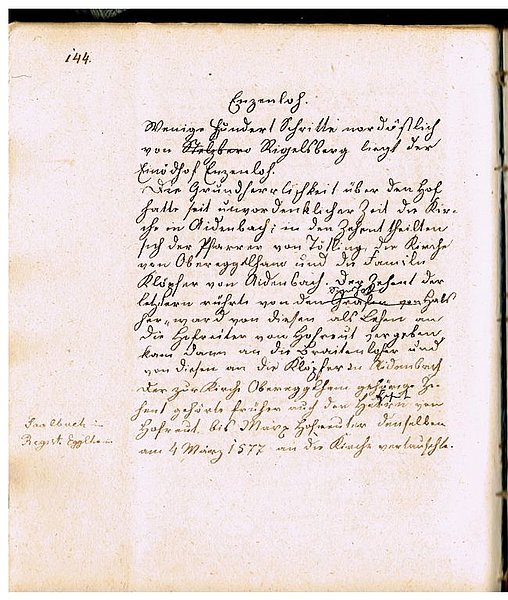 144.
Enzenloh.
Wenige Hundert Schritte nordöstlich
von Stelzbero Rigelsberg liegt der
Einödhof Enzenloh.
Die Grundherrlichkeit über den Hof
hatte seit unvordenklicher Zeit die Kir-
che in Aidenbach; in den Zehent theilten
sich der Pfarrer von Tötling, die Kirche
von Obereggelham und die Familie
Klöpfer von Aidenbach. Der Zehent der
letztern rührte von den Grafen von Hals
her, ward von diesen als Lehen an
die Hofreiter von Hofreut vergeben
kam dann an die Braitenloher und
von diesen an die Klöpfer in Aidenbach
Der zur Kirche Obereggelham gehörige Ze-
hent gehörte früher auch den Herrn von
Hofreut bis Marx Hofreuter denselben
am 4 März 1577 an die Kirche vertauschte.
Saalbuch in
Regist. Egglham